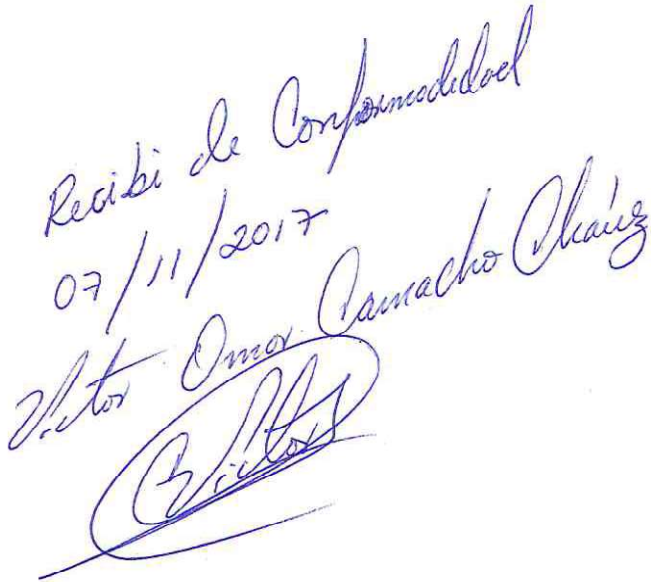 Recibi de Conformodidad
07/11/2017
Victor Omar Camacho Cháirez
Victor